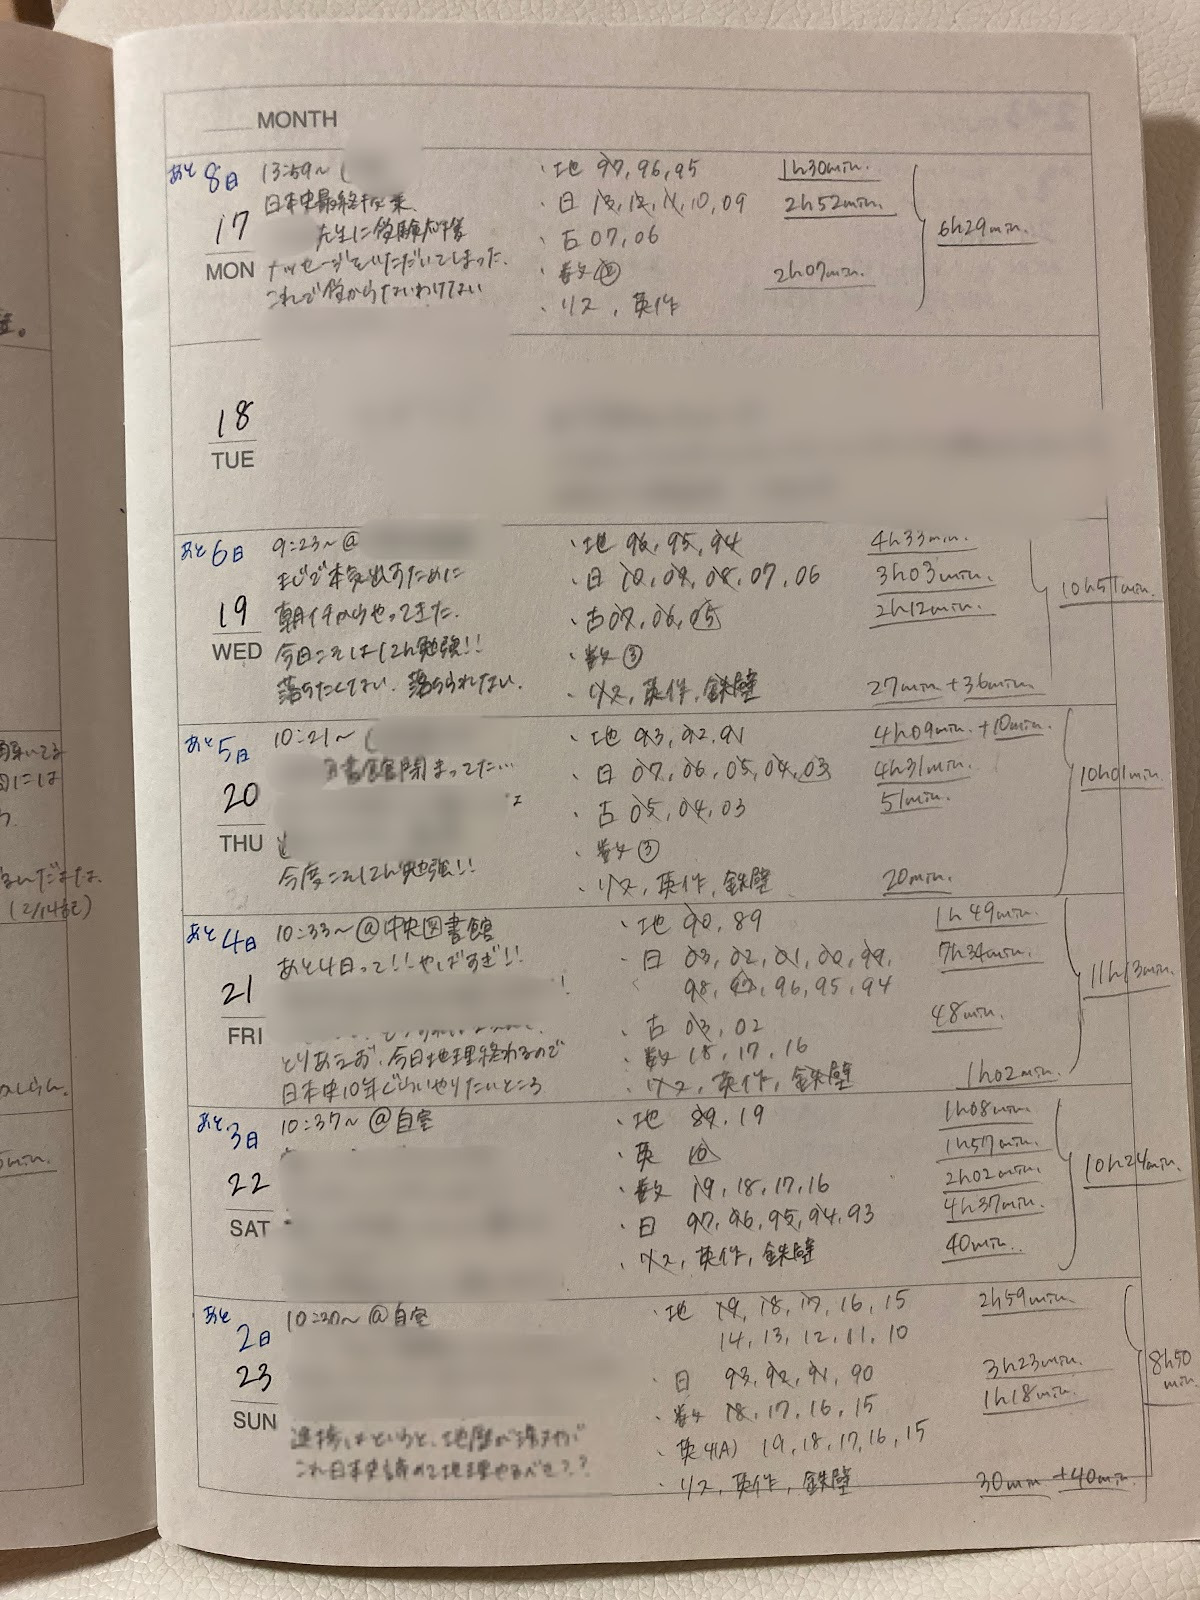 MONTH
あと8日
17
MON
13:59~(
日本史最終授業
先生に受験応援
メッセージをいただいてしまった.
これで受からないわけない
・地 97, 96, 95 1h30min.
・日 13, 12, 11, 10, 09 2h52min.
・古 07, 06
・数② 2h07min.
・リス, 英作
6h29min.
18
TUE
あと6日
19
WED
9:23~@
まじで本気出すために
朝イチからやってきた.
今日こそは12h勉強!!
落ちたくない. 落ちられない.
・地 96, 95, 94 4h33min.
・日 10, 09, 08, 07, 06 3h03min.
・古 07, 06, 05 2h12min.
・数③
・リス, 英作, 鉄壁 27min + 36min
10h51min.
あと5日
20
THU
10:21~(
図書館閉まってた…
今度こそ12h勉強!!
・地 93, 92, 91 4h09min. +10min.
・日 07, 06, 05, 04, 03 4h31min.
・古 05, 04, 03 51min.
・数③
・リス, 英作, 鉄壁 20min.
10h01min.
あと4日
21
FRI
10:33~@中央図書館
あと4日って!!やばすぎ!!
とりあえず、今日地理終わるので
日本史10年ぐらいやりたいところ
・地 90, 89 1h49min.
・日 03, 02, 01, 00, 99, 7h34min.
98, 97, 96, 95, 94
・古 03, 02 48min.
・数 18, 17, 16
・リス, 英作, 鉄壁 1h02min.
11h13min.
あと3日
22
SAT
10:37~@自室
・地 89, 19 1h08min.
・英 1h57min.
・数 19, 18, 17, 16 2h02min.
・日 97, 96, 95, 94, 93 4h37min.
・リス, 英作, 鉄壁 40min.
10h24min.
あと2日
23
SUN
10:30~@自室
進捗はというと、地歴が
これ日本史諦めて地理やるべき??
・地 19, 18, 17, 16, 15 2h59min.
14, 13, 12, 11, 10
・日 93, 92, 91, 90 3h23min.
・数 18, 17, 16, 15 1h18min.
・英4(A) 19, 18, 17, 16, 15
・リス, 英作, 鉄壁 30min +40min.
8h50min.
(2/14記)